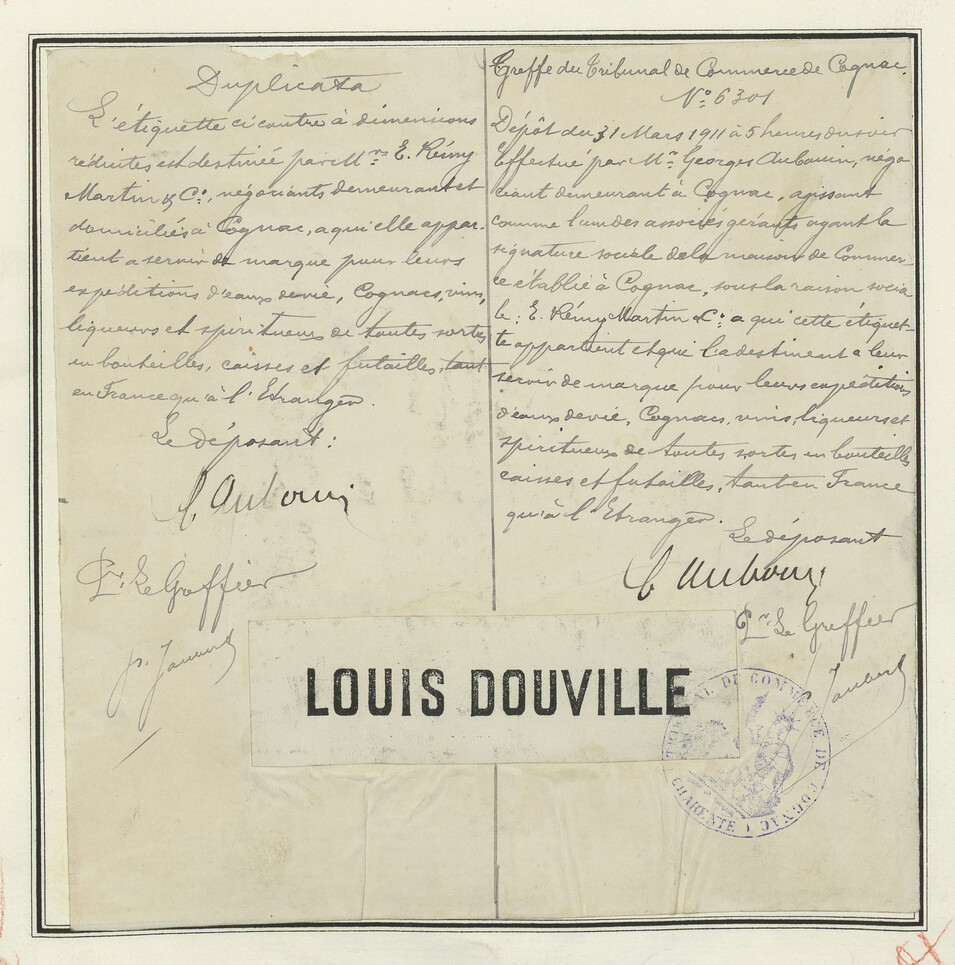 Duplicata
L'étiquette ci contre à dimensions
réduites est destinée par Mrs E. Rémy
Martin & Co, négociants demeurant et
domiciliés à Cognac, a qui elle appar-
tient a servir de marque pour leurs
expéditions d'eaux de vie, Cognacs, vins,
liqueurs et spiritueux de toutes sortes
en bouteilles, caisses et futailles, tant
en France qu'à l'Etranger.
Le déposant:
G. Aubouin
Pr. Le Greffier
Greffe du Tribunal de Commerce de Cognac.
No. 6301
Dépôt du 31 Mars 1911 à 5 heures du soir
Effectué par Mr. Georges Aubouin, négo
ciant demeurant à Cognac, agissant
comme l'un des associés gérants ayant la
signature sociale de la maison de Commer-
ce établie à Cognac, sous la raison socia
le: E. Rémy Martin & Co a qui cette étiquet-
te appartient et qui la destinent a leur
servir de marque pour leurs expéditions
d'eaux de vie, Cognacs, vins, liqueurs et
spiritueux de toutes sortes en bouteilles
caisses et futailles, tant en France
qu'à l'Etranger.
Le déposant
G. Aubouin
Pr. Le Greffier
LOUIS DOUVILLE
TRIBUNAL DE COMMERCE DE COGNAC
CHARENTE